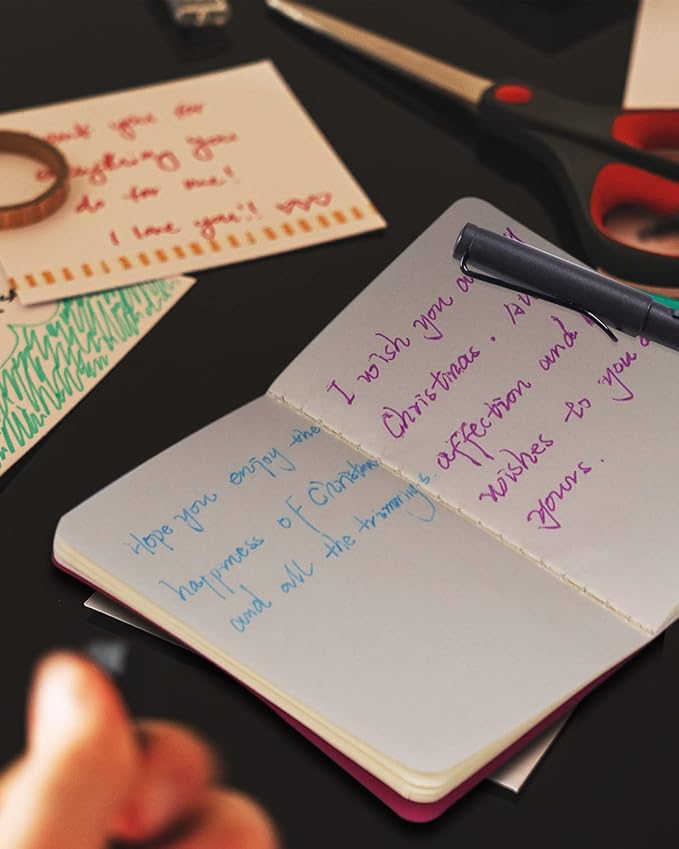 you for
everything you
do for me!
I love you!! ♡♡♡
Hope you enjoy the
happiness of Christm
and all the trimmings.
I wish you a
Christmas.
affection and
wishes to you
yours.